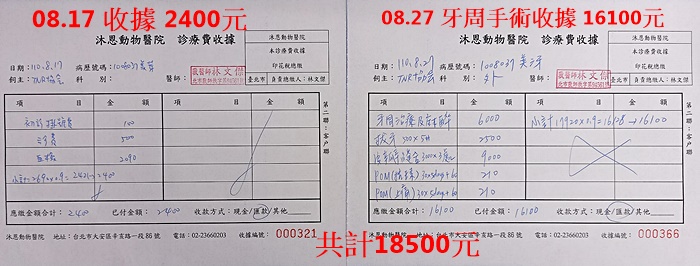 08.17 收據 2400元
沐恩動物醫院 診療費收據
沐恩動物醫院
本診療費收據
印花稅總繳
臺北市 負責總繳人：林文傑
日期：110.8.17 病歷號碼：1008037
飼主：TNR協會 科別： 醫師：
獸醫師 林文傑
項目 金額 項目 金額
初診掛號費 100
500
2090
應繳金額合計：2400 已付金額：2400 收款方式：現金/匯款/其他
第二聯：客戶聯
沐恩動物醫院 地址：台北市大安區辛亥路一段86號 電話：02-23660203 收據編號：000321
08.27 牙周手術收據 16100元
沐恩動物醫院 診療費收據
沐恩動物醫院
本診療費收據
印花稅總繳
臺北市 負責總繳人：林文傑
日期：110.8.27 病歷號碼：1008037
飼主：TNR協會 科別：外 醫師：
獸醫師 林文傑
項目 金額 項目 金額
牙周治療及麻醉 6000 小計17920x0.9=16128→16100
拔牙 500x5顆 2500
9000
210
210
應繳金額合計：16100 已付金額：16100 收款方式：現金/匯款/其他
第二聯：客戶聯
沐恩動物醫院 地址：台北市大安區辛亥路一段86號 電話：02-23660203 收據編號：000366
共計18500元